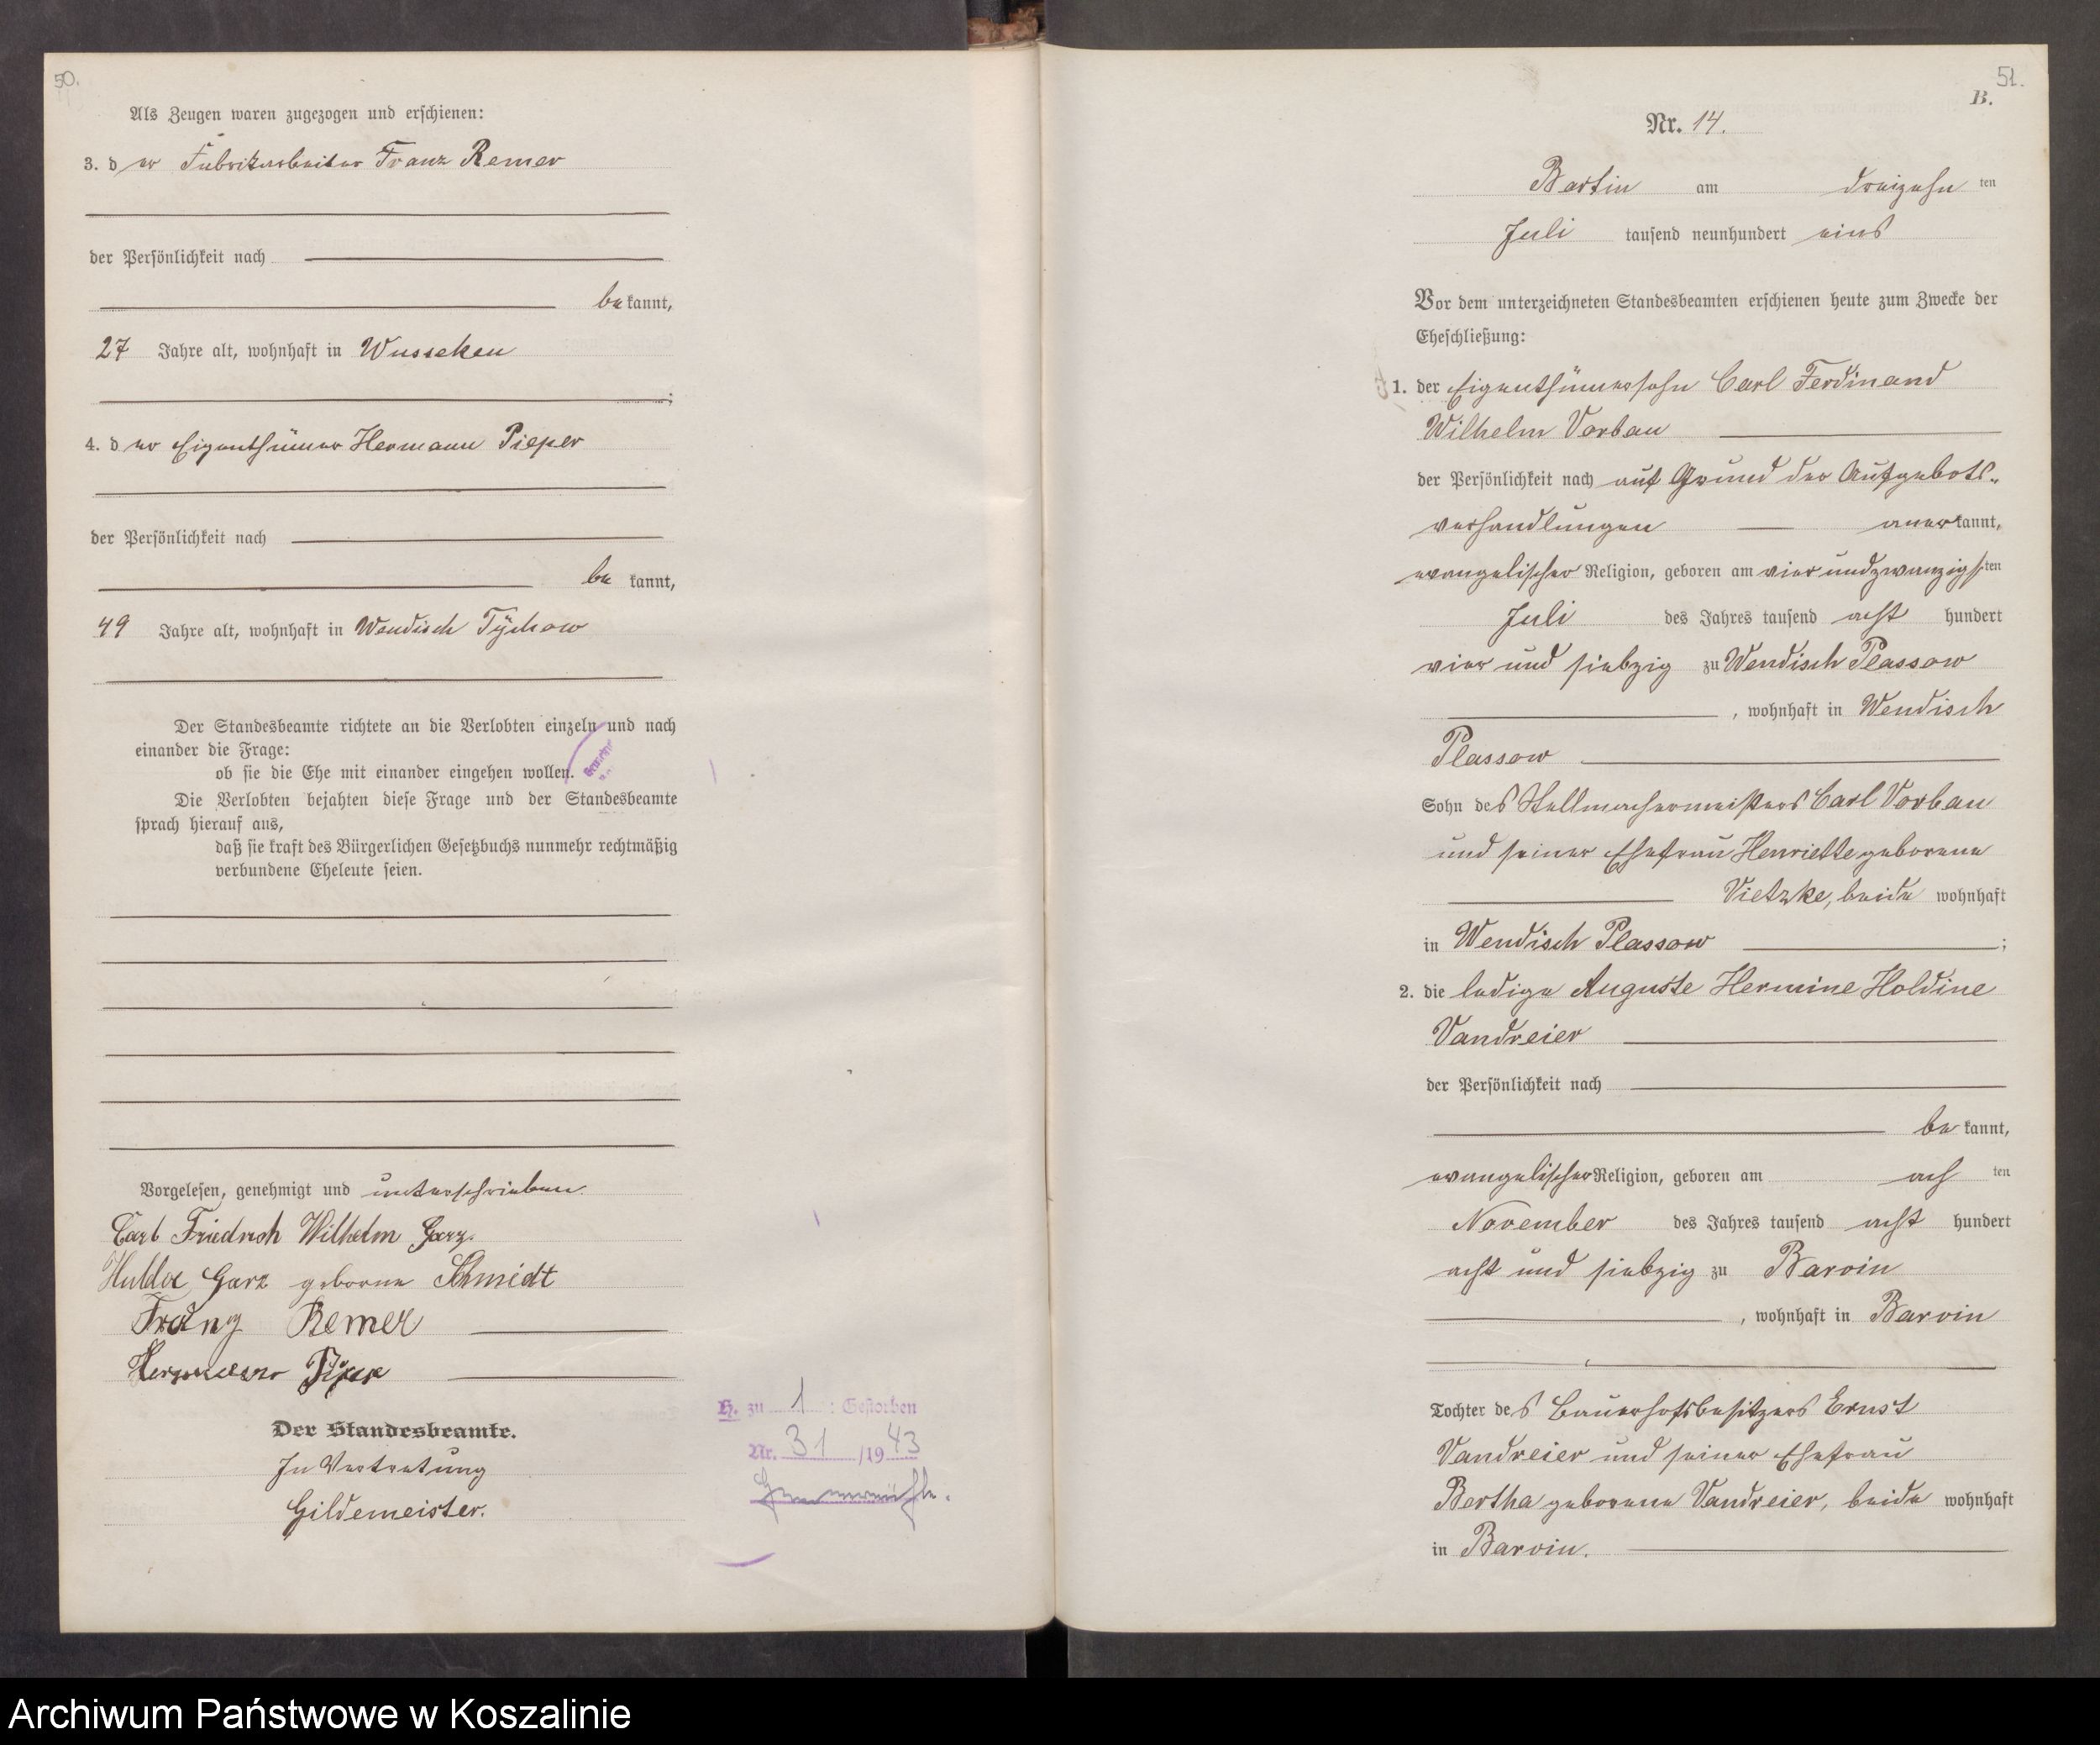 50.
Als Zeugen waren zugezogen und erschienen:
3. der Fabrikarbeiter Franz Remer
der Persönlichkeit nach
bekannt,
27 Jahre alt, wohnhaft in Wusseken
;
4. der Eigenthümer Hermann Pieper
der Persönlichkeit nach
bekannt,
49 Jahre alt, wohnhaft in Wendisch Tÿchow
Der Standesbeamte richtete an die Verlobten einzeln und nach
einander die Frage:
ob sie die Ehe mit einander eingehen wollen.
Die Verlobten bejahten diese Frage und der Standesbeamte
sprach hierauf aus,
daß sie kraft des Bürgerlichen Gesetzbuchs nunmehr rechtmäßig
verbundene Eheleute seien.
Vorgelesen, genehmigt und unterschrieben.
Carl Friedrich Wilhelm Garz.
Hulda Garz geborne Schmidt
Franz Remer
Hermann Piper
Der Standesbeamte.
In Vertretung
Gildemeister.
H. zu 1 : Gestorben
Nr. 31 /1943
51.
B.
Nr. 14.
Bartin am dreizehn ten
Juli tausend neunhundert eins
Vor dem unterzeichneten Standesbeamten erschienen heute zum Zwecke der
Eheschließung:
1. der Eigenthümersohn Carl Ferdinand
Wilhelm Vorbau
der Persönlichkeit nach auf Grund der Aufgebots-
verhandlungen anerkannt,
evangelischer Religion, geboren am vier und zwanzigsten
Juli des Jahres tausend acht hundert
vier und siebzig zu Wendisch Plassow
, wohnhaft in Wendisch
Plassow
Sohn des Stellmachermeisters Carl Vorbau
und seiner Ehefrau Henriette geborene
Vietzke, beide wohnhaft
in Wendisch Plassow ;
2. die ledige Auguste Hermine Holdine
Vandreier
der Persönlichkeit nach
bekannt,
evangelischer Religion, geboren am ach ten
November des Jahres tausend acht hundert
acht und siebzig zu Barvin
, wohnhaft in Barvin
Tochter des Bauerhofsbesitzers Ernst
Vandreier und seiner Ehefrau
Bertha geborene Vandreier, beide wohnhaft
in Barvin.
Archiwum Państwowe w Koszalinie